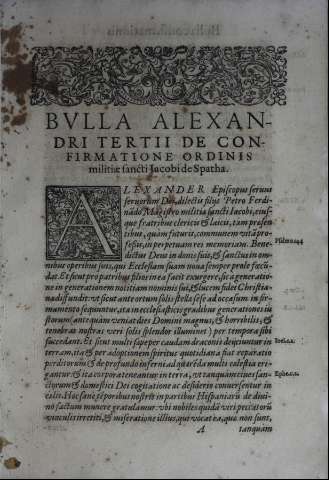 BVLLA ALEXAN-
DRI TERTII DE CON-
FIRMATIONE ORDINIS
militiæ sancti Iacobi de Spatha.
ALEXANDER Episcopus seruus
seruorum Dei, dilectis filijs Petro Ferdi-
nādo Magistro militiæ sancti Iacobi, eius-
que fratribus clericis & laicis, tam præsen-
tibus, quam futuris, communem vitā pro-
fessis, in perpetuam rei memoriam. Bene-
Psalmo 144.
dictus Deus in donis suis, & sanctus in om-
nibus operibus suis, qui Ecclesiam suam noua semper prole fœcun-
dat. Et sicut pro patribus filios in ea facit exurgere, sic a generatio-
ne in generationem notitiam nominis sui, & lucem fidei Christia-
næ diffundit: vt sicut ante ortum solis stellæ sese ad occasum in fir-
mamento sequuntur, ita in ecclesiasticis gradibus generationes iu-
storum (antequam veniat dies Domini magnus, & horribilis, &
tenebras nostras veri solis splendor illuminet) per tempora sibi
succedant. Et sicut multi sæpe caudam draconis deijciuntur in
terram, ita & per adoptionem spiritus quotidiana fiat reparatio
perditorum & de profundo inferni ad quærēda multi cælestia eri-
gantur: & ita corporatene antur in terra, vt tanquam ciues san-
Ephe.c.2.
ctorum & domestici Dei cogitatione ac desiderio conuersentur in
cælis. Hoc sanè tēporibus nostris in partibus Hispaniarū de diui-
no factum munere gratulamur: vbi nobiles quidā viri peccatorū
vinculis irretiti, & miseratione illius, qui vocat ea, quæ non sunt,
A tanquam